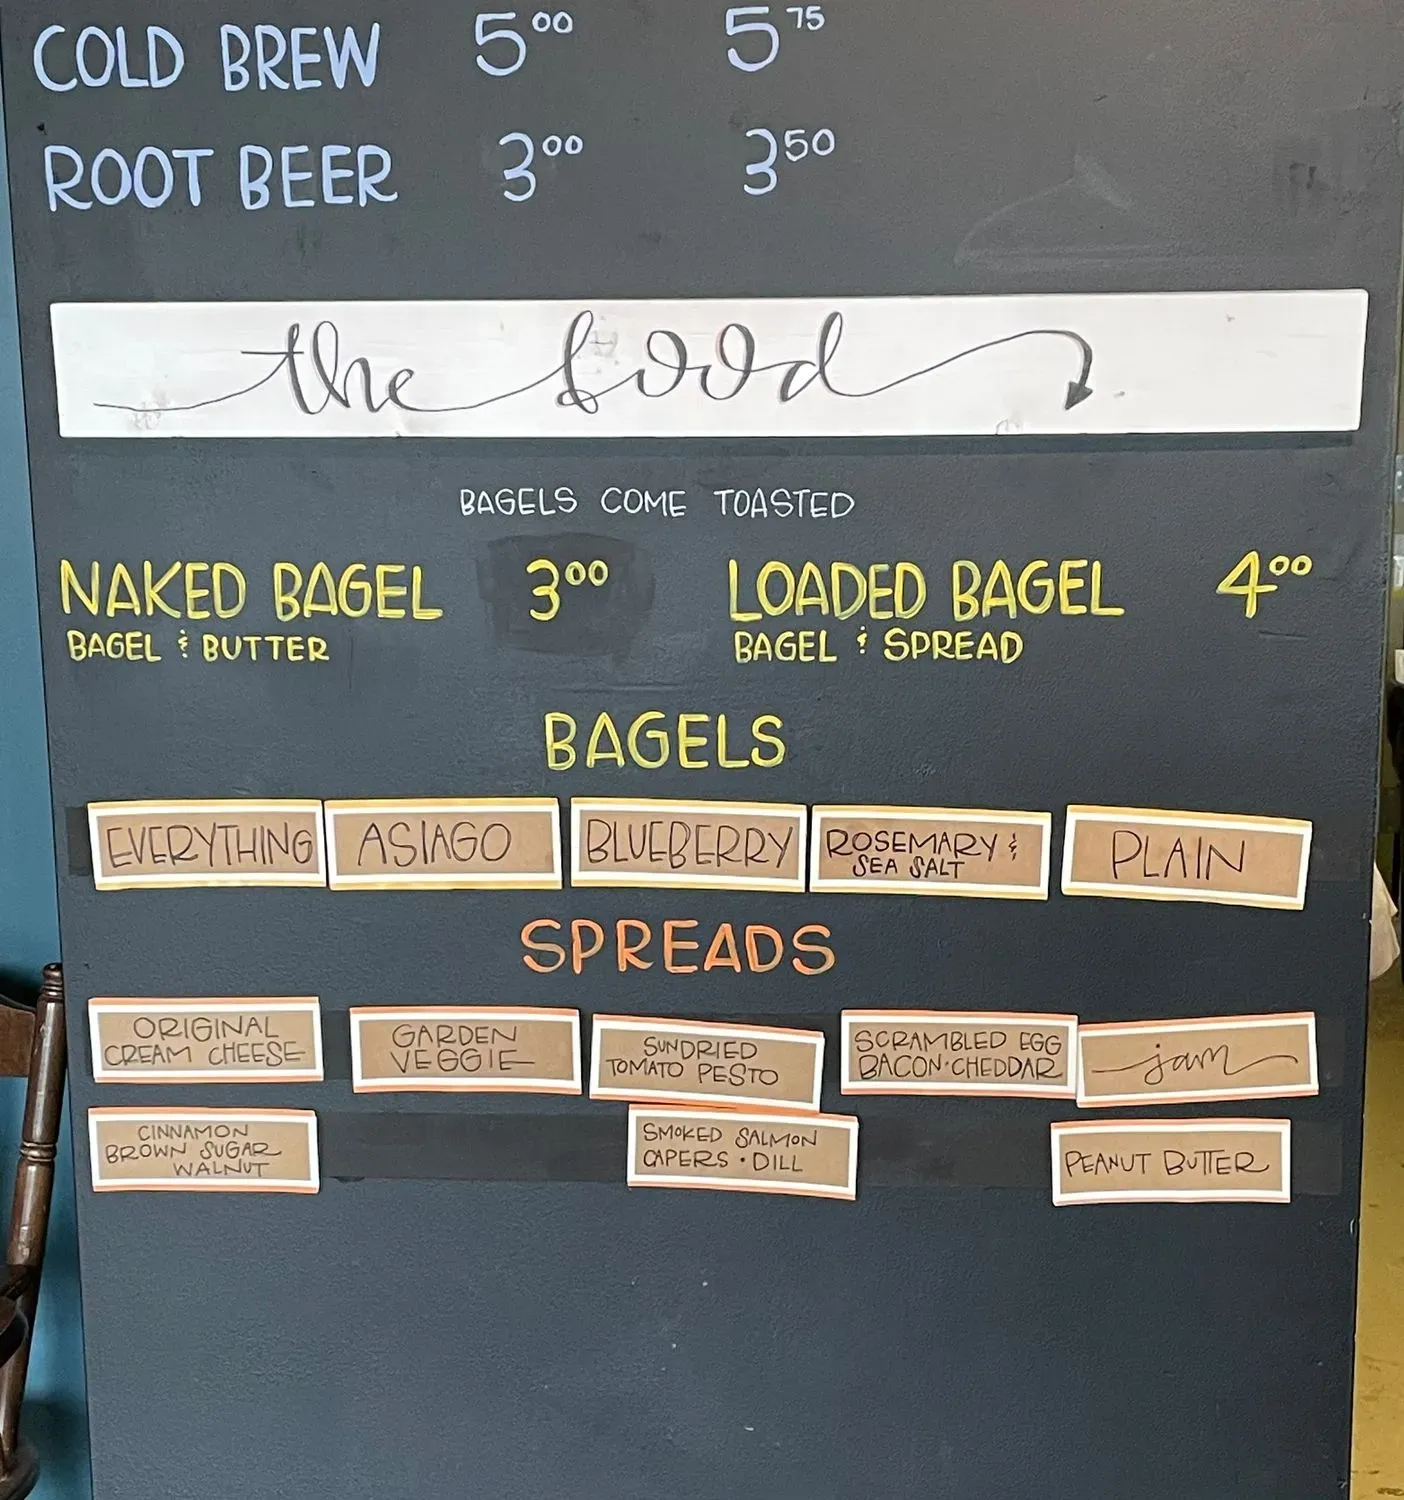 COLD BREW 5⁰⁰ 5⁷⁵
ROOT BEER 3⁰⁰ 3⁵⁰
the food
BAGELS COME TOASTED
NAKED BAGEL 3⁰⁰ LOADED BAGEL 4⁰⁰
BAGEL & BUTTER BAGEL & SPREAD
BAGELS
EVERYTHING ASIAGO BLUEBERRY ROSEMARY & PLAIN
SEA SALT
SPREADS
ORIGINAL
CREAM CHEESE
GARDEN
VEGGIE
SUNDRIED
TOMATO PESTO
SCRAMBLED EGG
BACON·CHEDDAR
jam
CINNAMON
BROWN SUGAR
WALNUT
SMOKED SALMON
CAPERS · DILL
PEANUT BUTTER